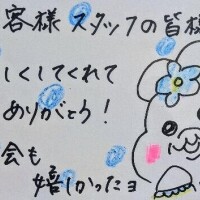 客様 スタッフの皆様
しくしてくれて
ありがとう!
会も
嬉しかったヨ